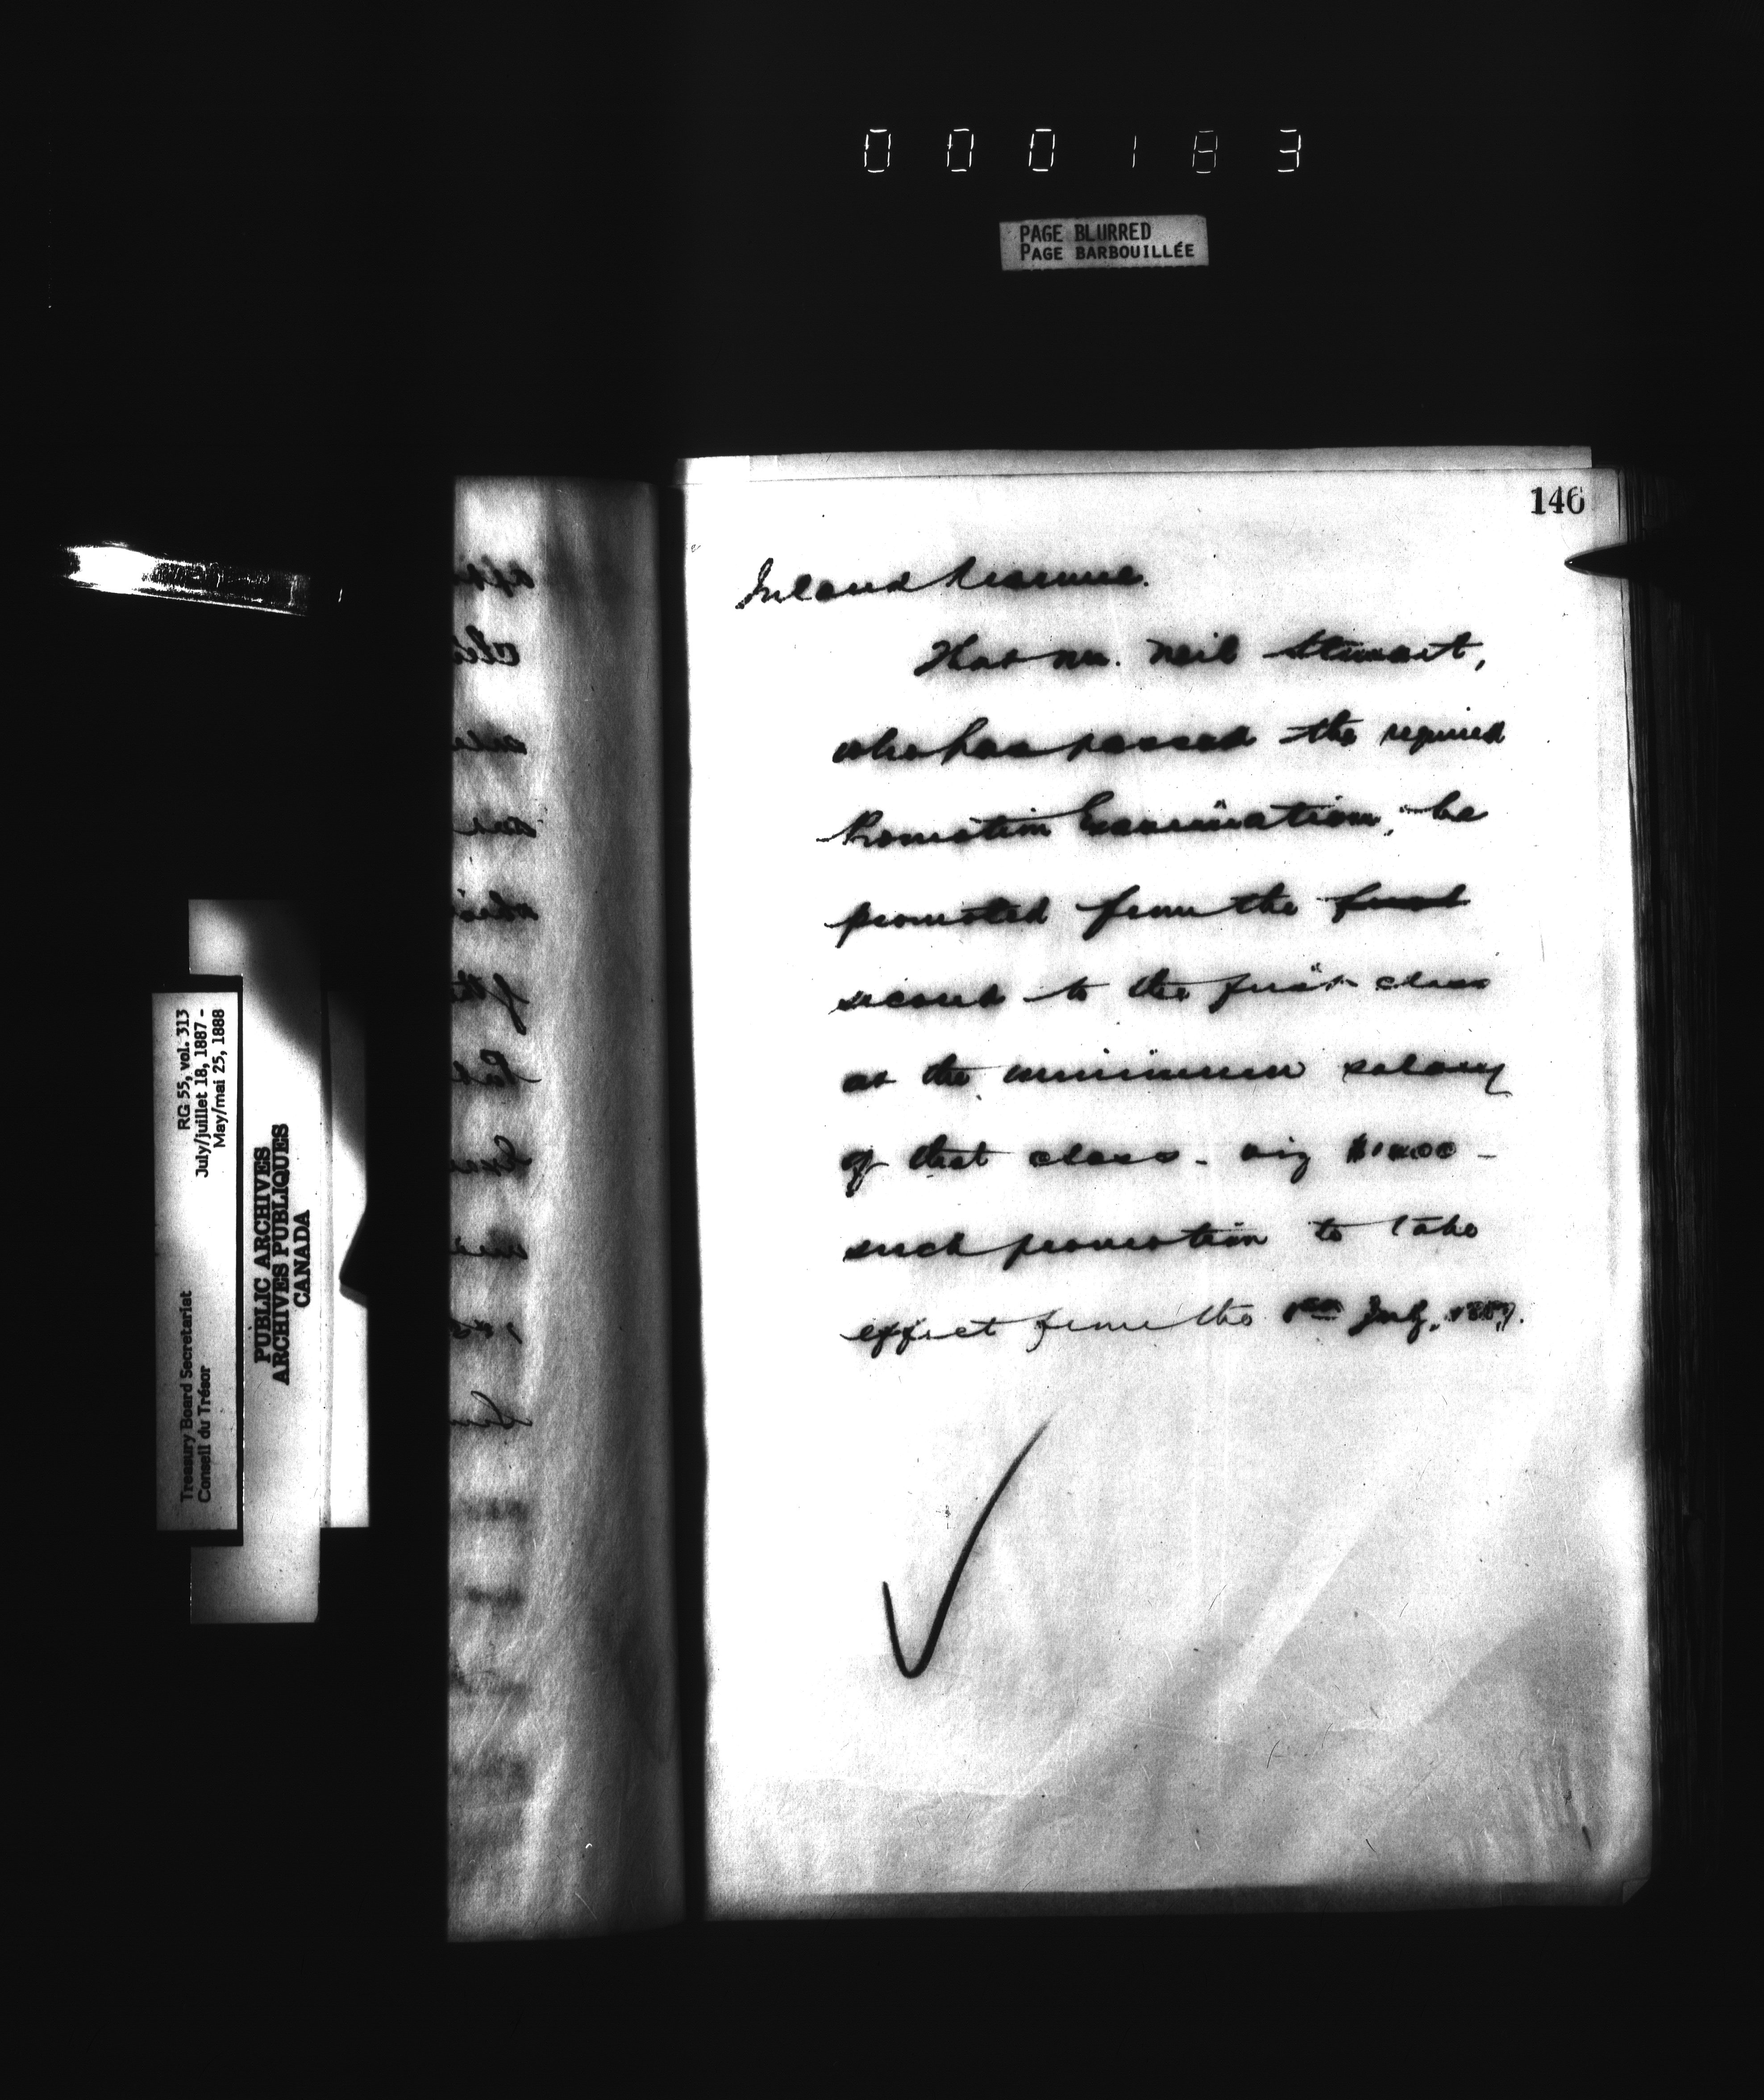 000183
PAGE BLURRED
PAGE BARBOUILLÉE
146
Inland Revenue.
That Mr. Neil Stewart,
who has passed the required
Promotion Examination, be
promoted from the first
second to the first class
at the minimum salary
of that class - viz
such promotion to take
effect from the July, 1887.
RG 55, vol. 313
July/juillet 18, 1887 -
May/mai 25, 1888
Treasury Board Secretariat
Conseil du Trésor
PUBLIC ARCHIVES
ARCHIVES PUBLIQUES
CANADA